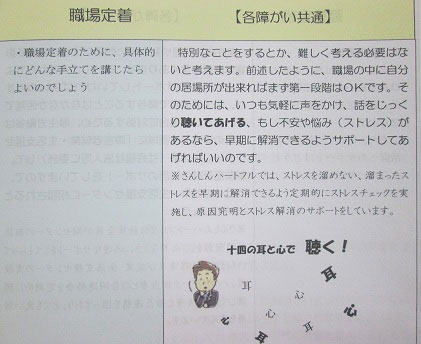 職場定着
【各障がい共通】
・職場定着のために、具体的
にどんな手立てを講じたら
よいのでしょう
特別なことをするとか、難しく考える必要はな
いと考えます。前述したように、職場の中に自分
の居場所が出来ればまず第一段階はOKです。そ
のためには、いつも気軽に声をかけ、話をじっく
り聴いてあげる、もし不安や悩み（ストレス）が
あるなら、早期に解消できるようサポートしてあ
げればいいのです。
※さんしんハートフルでは、ストレスを溜めない、溜まったス
トレスを早期に解消できるよう定期的にストレスチェックを実
施し、原因究明とストレス解消のサポートをしています。
十四の耳と心で 聴く！
耳
耳
心
心
心
耳
心